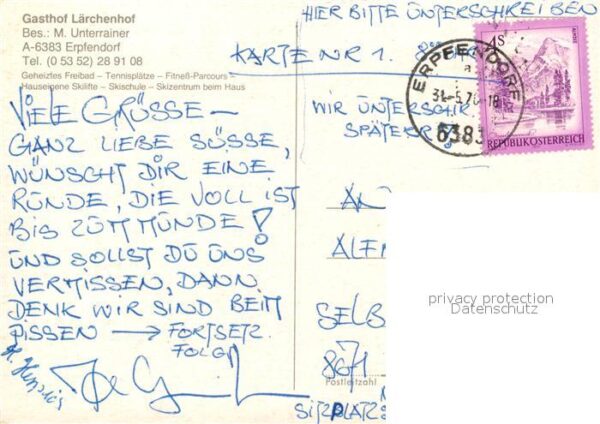 Gasthof Lärchenhof
Bes.: M. Unterrainer
A-6383 Erpfendorf
Tel. (0 53 52) 28 91 08
Geheiztes Freibad – Tennisplätze – Fitneß-Parcours –
Hauseigene Skilifte – Skischule – Skizentrum beim Haus
VIELE GRÜSSE –
GANZ LIEBE SÜSSE,
WÜNSCHT DIR EINE
RUNDE, DIE VOLL IST
BIS ZUM MUNDE!
UND SOLLST DU UNS
VERMISSEN, DANN
DENK WIR SIND BEIM
PISSEN → FORTSETZ.
FOLGT
HIER BITTE UNTERSCHREIBEN
KARTE NR 1.
WIR UNTERSCHR.
SPÄTER
ERPFENDORF
6383
4S
REPUBLIK ÖSTERREICH
AN
ALF
SELB
Postleitzahl
SITZPLATZ
privacy protection
Datenschutz